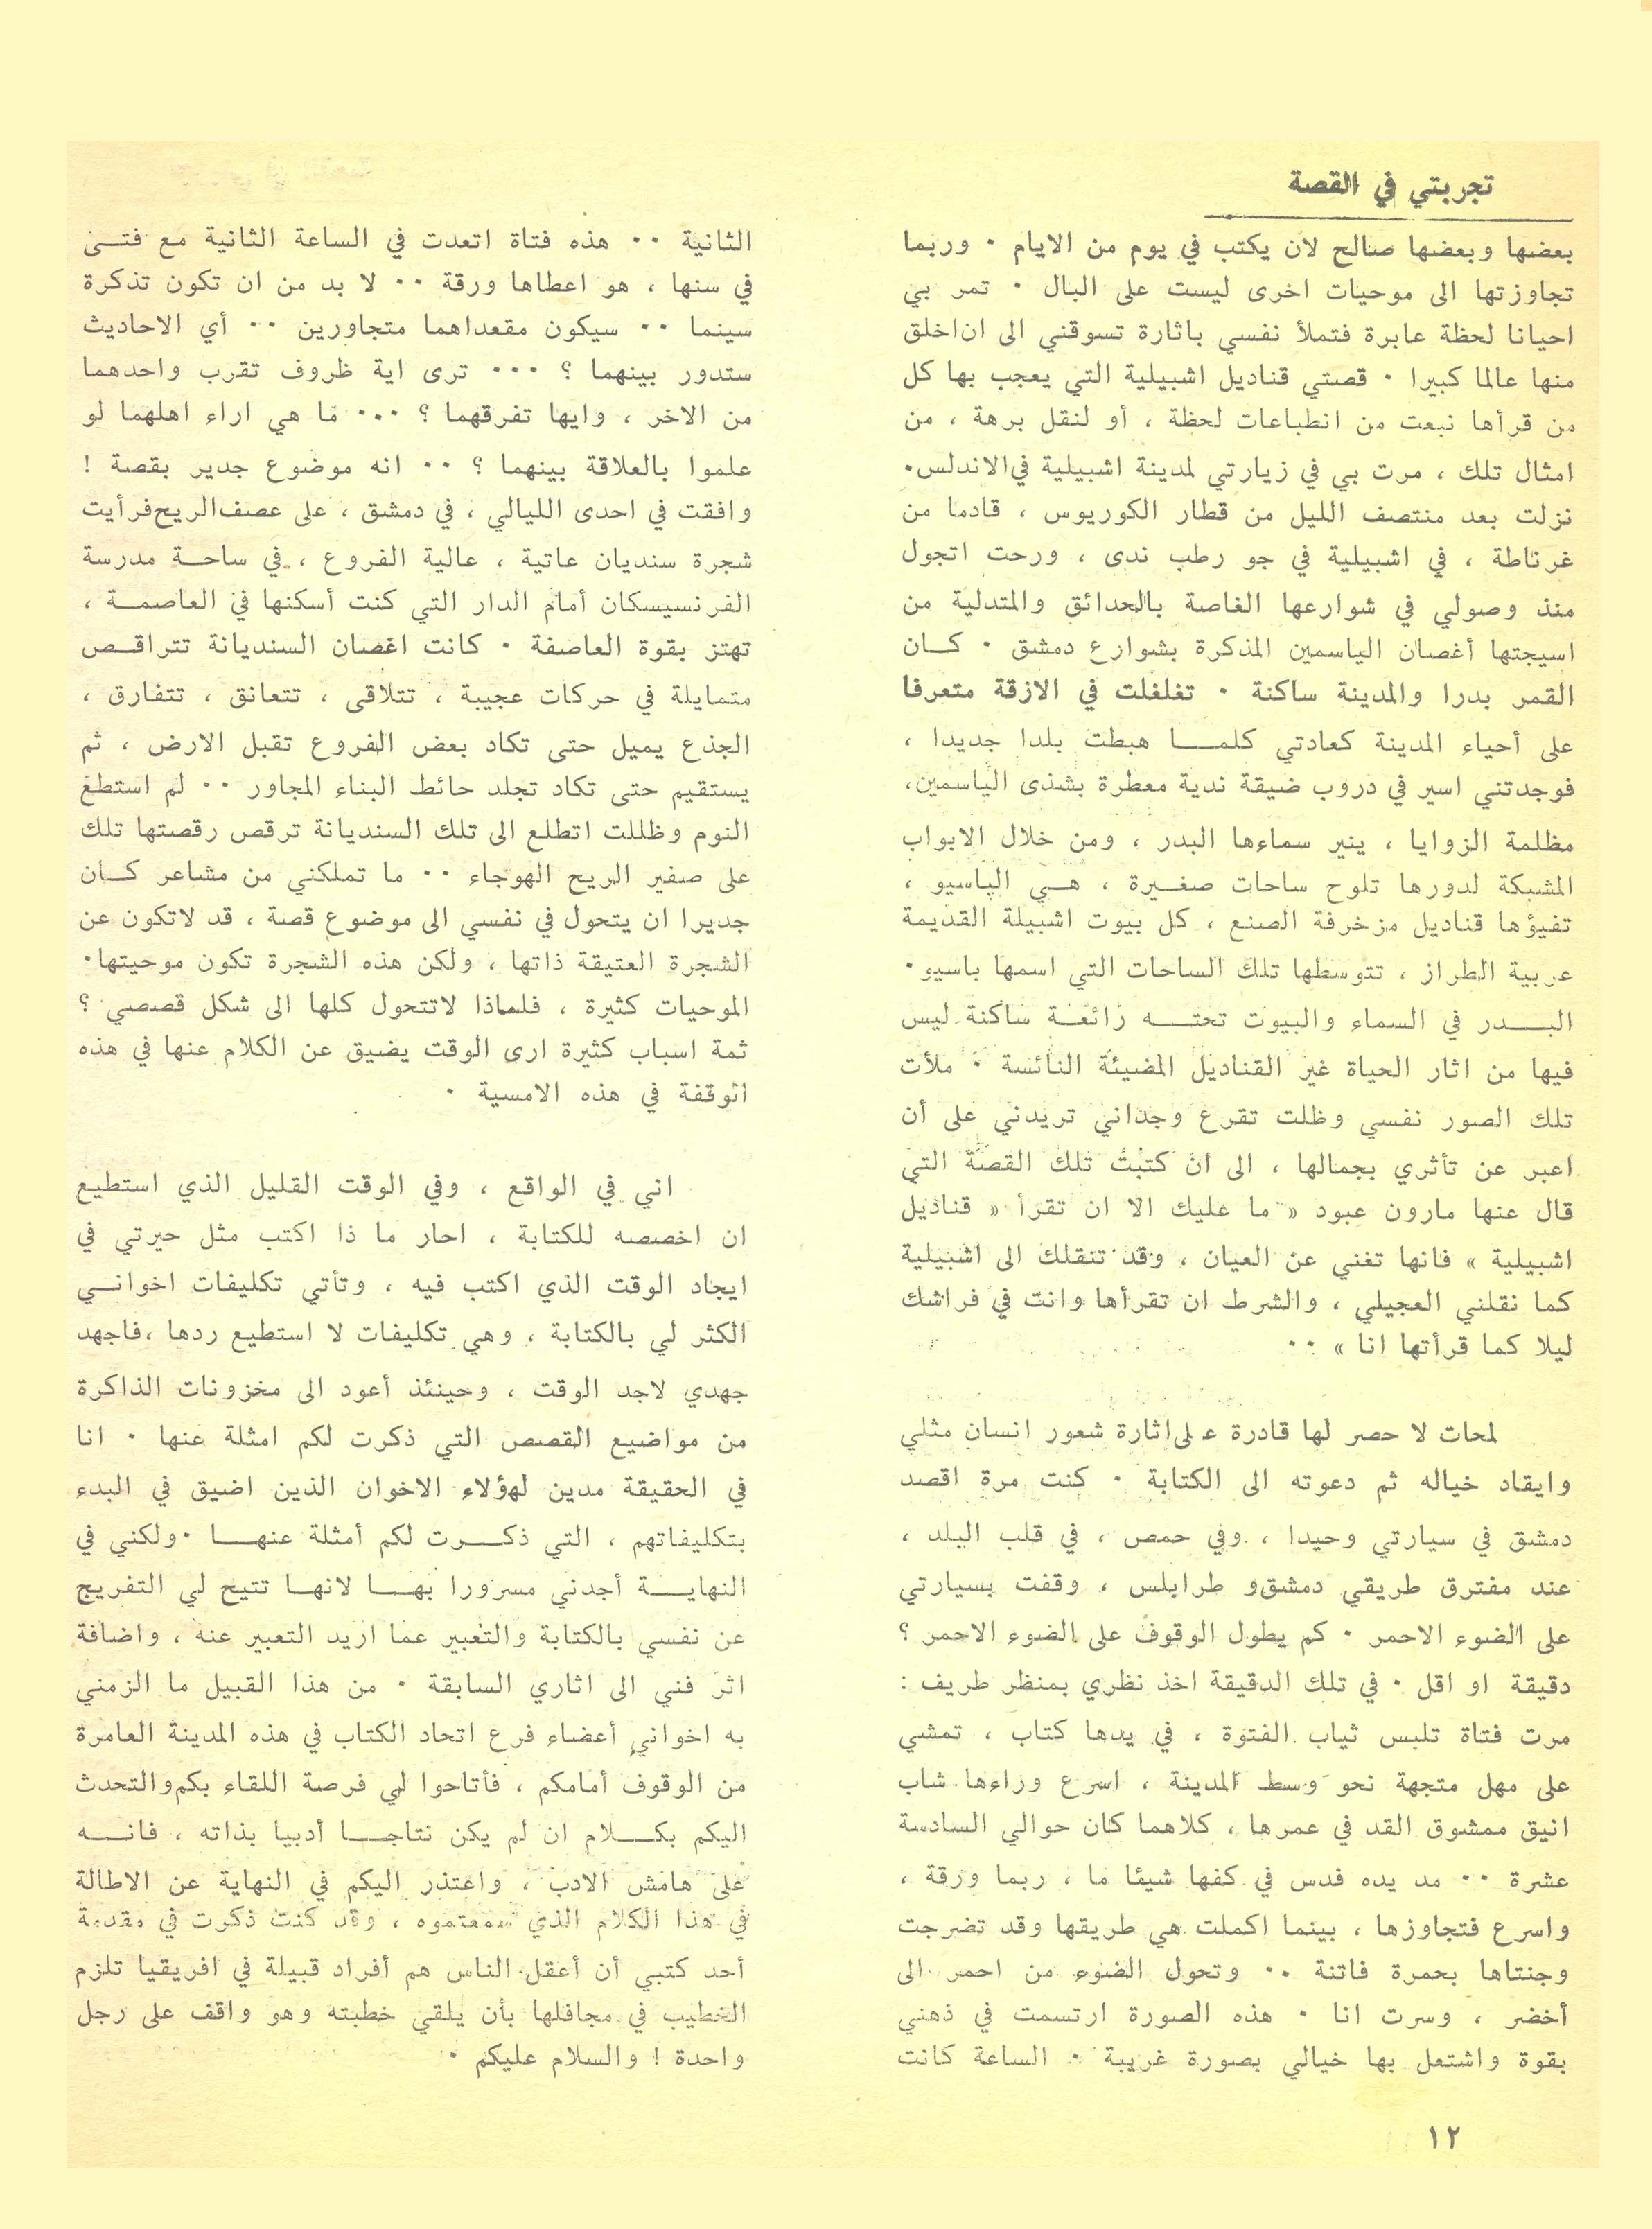 تجربتي في القصة
بعضها وبعضها صالح لان يكتب في يوم من الايام ٠ وربما
تجاوزتها الى موحيات اخرى ليست على البال ٠ تمر بي
احيانا لحظة عابرة فتملأ نفسي باثارة تسوقني الى ان اخلق
منها عالما كبيرا ٠ قصتي قناديل اشبيلية التي يعجب بها كل
من قرأها نبعت من انطباعات لحظة ، أو لنقل برهة ، من
امثال تلك ، مرت بي في زيارتي لمدينة اشبيلية في الاندلس٠
نزلت بعد منتصف الليل من قطار الكوريوس ، قادما من
غرناطة ، في اشبيلية في جو رطب ندى ، ورحت اتجول
منذ وصولي في شوارعها الغاصة بالحدائق والمتدلية من
اسيجتها أغصان الياسمين المذكرة بشوارع دمشق ٠ كــان
القمر بدرا والمدينة ساكنة ٠ تغلغلت في الازقة متعرفا
على أحياء المدينة كعادتي كلمــا هبطت بلدا جديدا ،
فوجدتني اسير في دروب ضيقة ندية معطرة بشذى الياسمين،
مظلمة الزوايا ، ينير سماءها البدر ، ومن خلال الابواب
المشبكة لدورها تلوح ساحات صغــيرة ، هــي الباسيو ،
تفيؤها قناديل مزخرفة الصنع ، كل بيوت اشبيلة القديمة
عربية الطراز ، تتوسطها تلك الساحات التي اسمها باسيو٠
البــدر في السماء والبيوت تحتــه رائعــة ساكنة ليس
فيها من اثار الحياة غير القناديل المضيئة النائسة ٠ ملأت
تلك الصور نفسي وظلت تقرع وجداني تريدني على أن
اعبر عن تأثري بجمالها ، الى ان كتبت تلك القصة التي
قال عنها مارون عبود « ما عليك الا ان تقرأ « قناديل
اشبيلية » فانها تغني عن العيان ، وقد تنقلك الى اشبيلية
كما نقلني العجيلي ، والشرط ان تقرأها وانت في فراشك
ليلا كما قرأتها انا » ٠٠
لمحات لا حصر لها قادرة على اثارة شعور انسان مثلي
وايقاد خياله ثم دعوته الى الكتابة ٠ كنت مرة اقصد
دمشق في سيارتي وحيدا ، وفي حمص ، في قلب البلد ،
عند مفترق طريقي دمشق و طرابلس ، وقفت بسيارتي
على الضوء الاحمر ٠ كم يطول الوقوف على الضوء الاحمر ؟
دقيقة او اقل ٠ في تلك الدقيقة اخذ نظري بمنظر طريف :
مرت فتاة تلبس ثياب الفتوة ، في يدها كتاب ، تمشي
على مهل متجهة نحو وسط المدينة ، اسرع وراءها شاب
انيق ممشوق القد في عمرها ، كلاهما كان حوالي السادسة
عشرة ٠٠ مد يده فدس في كفها شيئا ما ، ربما ورقة ،
واسرع فتجاوزها ، بينما اكملت هي طريقها وقد تضرجت
وجنتاها بحمرة فاتنة ٠٠ وتحول الضوء من احمر الى
أخضر ، وسرت انا ٠ هذه الصورة ارتسمت في ذهني
بقوة واشتعل بها خيالي بصورة غريبة ٠ الساعة كانت
الثانية ٠٠ هذه فتاة اتعدت في الساعة الثانية مع فتــى
في سنها ، هو اعطاها ورقة ٠٠ لا بد من ان تكون تذكرة
سينما ٠٠ سيكون مقعداهما متجاورين ٠٠ أي الاحاديث
ستدور بينهما ؟ ٠٠٠ ترى اية ظروف تقرب واحدهما
من الاخر ، وايها تفرقهما ؟ ٠٠٠ ما هي اراء اهلهما لو
علموا بالعلاقة بينهما ؟ ٠٠ انه موضوع جدير بقصة !
وافقت في احدى الليالي ، في دمشق ، على عصف الريح فرأيت
شجرة سنديان عاتية ، عالية الفروع ، في ساحــة مدرسة
الفرنسيسكان أمام الدار التي كنت أسكنها في العاصمــة ،
تهتز بقوة العاصفة ٠ كانت اغصان السنديانة تتراقــص
متمايلة في حركات عجيبة ، تتلاقى ، تتعانق ، تتفارق ،
الجذع يميل حتى تكاد بعض الفروع تقبل الارض ، ثم
يستقيم حتى تكاد تجلد حائط البناء المجاور ٠٠ لم استطع
النوم وظللت اتطلع الى تلك السنديانة ترقص رقصتها تلك
على صفير الريح الهوجاء ٠٠ ما تملكني من مشاعر كــان
جديرا ان يتحول في نفسي الى موضوع قصة ، قد لاتكون عن
الشجرة العتيقة ذاتها ، ولكن هذه الشجرة تكون موحيتها٠
الموحيات كثيرة ، فلماذا لاتتحول كلها الى شكل قصصي ؟
ثمة اسباب كثيرة ارى الوقت يضيق عن الكلام عنها في هذه
الوقفة في هذه الامسية ٠
اني في الواقع ، وفي الوقت القليل الذي استطيع
ان اخصصه للكتابة ، احار ما ذا اكتب مثل حيرتي في
ايجاد الوقت الذي اكتب فيه ، وتأتي تكليفات اخوانــي
الكثر لي بالكتابة ، وهي تكليفات لا استطيع ردها ،فاجهد
جهدي لاجد الوقت ، وحينئذ أعود الى مخزونات الذاكرة
من مواضيع القصص التي ذكرت لكم امثلة عنها ٠ انا
في الحقيقة مدين لهؤلاء الاخوان الذين اضيق في البدء
بتكليفاتهم ، التي ذكــرت لكم أمثلة عنهــا ٠ولكني في
النهايــة أجدني مسرورا بهــا لانهــا تتيح لي التفريج
عن نفسي بالكتابة والتعبير عما اريد التعبير عنه ، واضافة
اثر فني الى اثاري السابقة ٠ من هذا القبيل ما الزمني
به اخواني أعضاء فرع اتحاد الكتاب في هذه المدينة العامرة
من الوقوف أمامكم ، فأتاحوا لي فرصة اللقاء بكم والتحدث
اليكم بكــلام ان لم يكن نتاجــا أدبيا بذاته ، فانــه
على هامش الادب ، واعتذر اليكم في النهاية عن الاطالة
في هذا الكلام الذي سمعتموه ، وقد كنت ذكرت في مقدمة
أحد كتبي أن أعقل الناس هم أفراد قبيلة في افريقيا تلزم
الخطيب في محافلها بأن يلقي خطبته وهو واقف على رجل
واحدة ! والسلام عليكم ٠
١٢